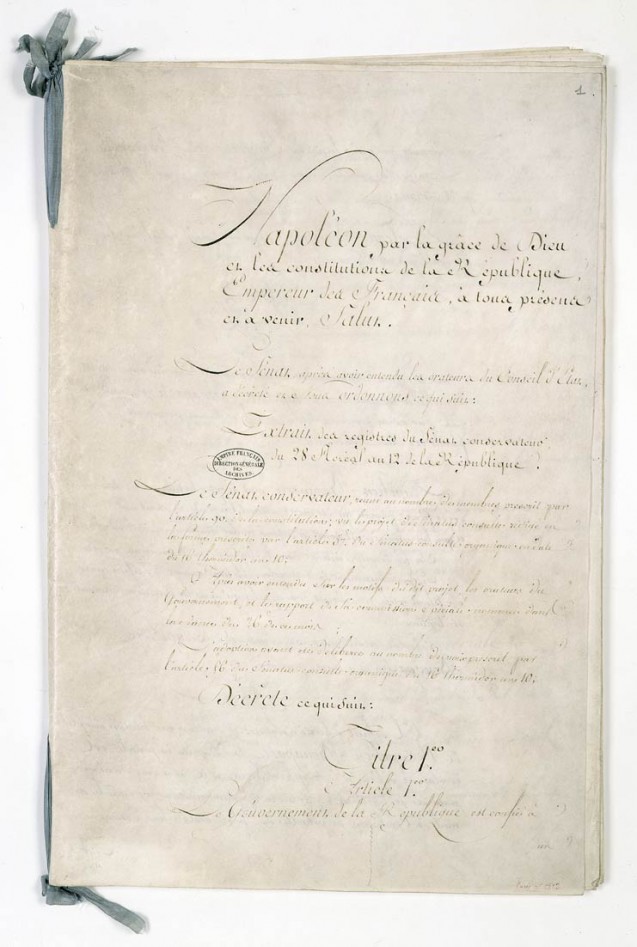 1.
Napoléon par la grâce de Dieu
et les constitutions de la République,
Empereur des Français, à tous présens
et à venir, Salut.
Le Sénat, après avoir entendu les orateurs du Conseil d'État,
a décrété et nous ordonnons ce qui suit:
Extrait des registres du Sénat conservateur
du 28 floréal an 12 de la République.
EMPIRE FRANÇAIS
DIRECTION GÉNÉRALE
DES
ARCHIVES
Le Sénat conservateur, réuni au nombre de membres prescrit par
l'article 90 de la constitution; vu le projet de sénatus-consulte rédigé en
la forme prescrite par l'article 57 du sénatus-consulte organique en date
du 16 thermidor an 10;
Après avoir entendu sur les motifs du dit projet les orateurs du
Gouvernement, et le rapport de sa commission spéciale, nommée dans
la séance du 26 de ce mois;
L'adoption ayant été délibérée au nombre de voix prescrit par
l'article 56 du Sénatus-consulte organique du 16 thermidor an 10;
Décrète ce qui suit:
Titre 1.er
Article 1.er
Le Gouvernement de la République est confié à
un